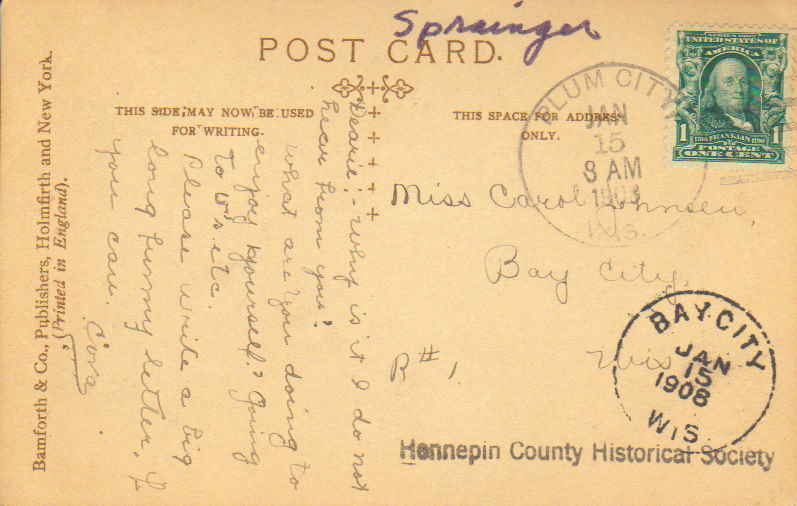 Sprainger
POST CARD.
THIS SIDE MAY NOW BE USED
FOR WRITING.
THIS SPACE FOR ADDRESS
ONLY.
Bamforth & Co., Publishers, Holmfirth and New York.
(Printed in England).
SERIES 1902
UNITED STATES OF
AMERICA
1706 FRANKLIN 1790
1 POSTAGE 1
ONE CENT
PLUM CITY
JAN
15
8 AM
1908
WIS.
Dearie:- Why is it I do not
hear from you?
What are you doing to
enjoy yourself? Going
to
Please write a big
long funny letter, if
you can.
Cora
Miss Carol
Bay City,
Wis
R#1.
BAY CITY
JAN
15
1908
WIS.
Hennepin County Historical Society